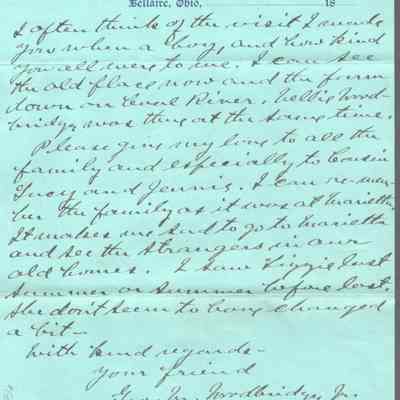 Bellaire, Ohio, 18
I often think of the visit I made
you when a boy, and how kind
you all were to me. I can see
the old place now and the farm
down on River. Nellie Wood-
bridge was there at the same time.
Please give my love to all the
family and especially to Cousin
Lucy and Jennie. I can remem-
ber the family as it was at Marietta.
It makes me sad to go to Marietta
and see the strangers in our
old homes. I saw Lizzie last
summer or summer before last.
She don't seem to have changed
a bit—
With kind regards—
Your friend
Geo. M. Woodbridge, Jr.